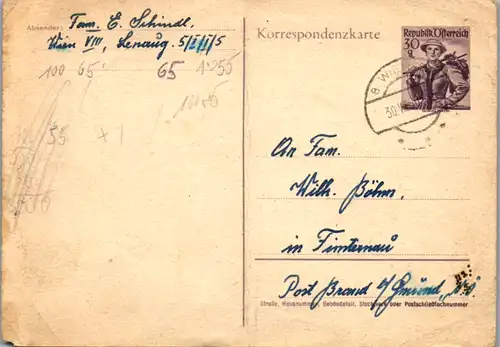 Absender: Fam. E. Schindl,
Wien VIII, Lenaug. 5/I/5
100 65 65 1255
Korrespondenzkarte
Republik Österreich
30 g
30.V
An Fam.
Wilh. Böhm,
in Finternau
Post Brand b/ Gmünd, N.Ö.
Straße, Hausnummer, Gebäudeteil, Stockwerk oder Postschließfachnummer